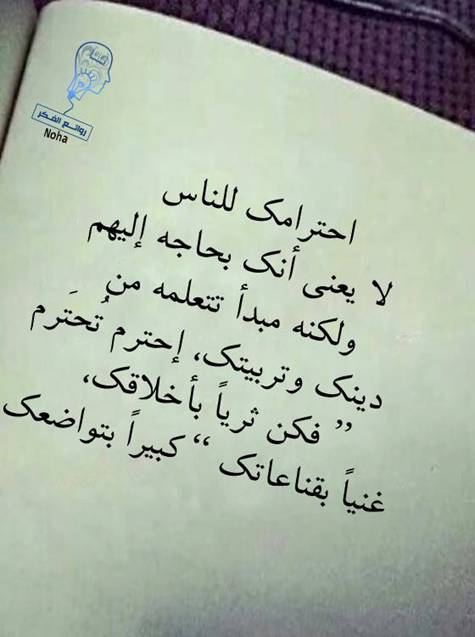 روائع الفكر
Noha
احترامک للناس
لا يعنی أنک بحاجه إليهم
ولکنه مبدأ تتعلمه من
دينک وتربيتک، إحترم تُحتَرم
” فکن ثرياً بأخلاقک،
غنياً بقناعاتک “ کبيراً بتواضعک